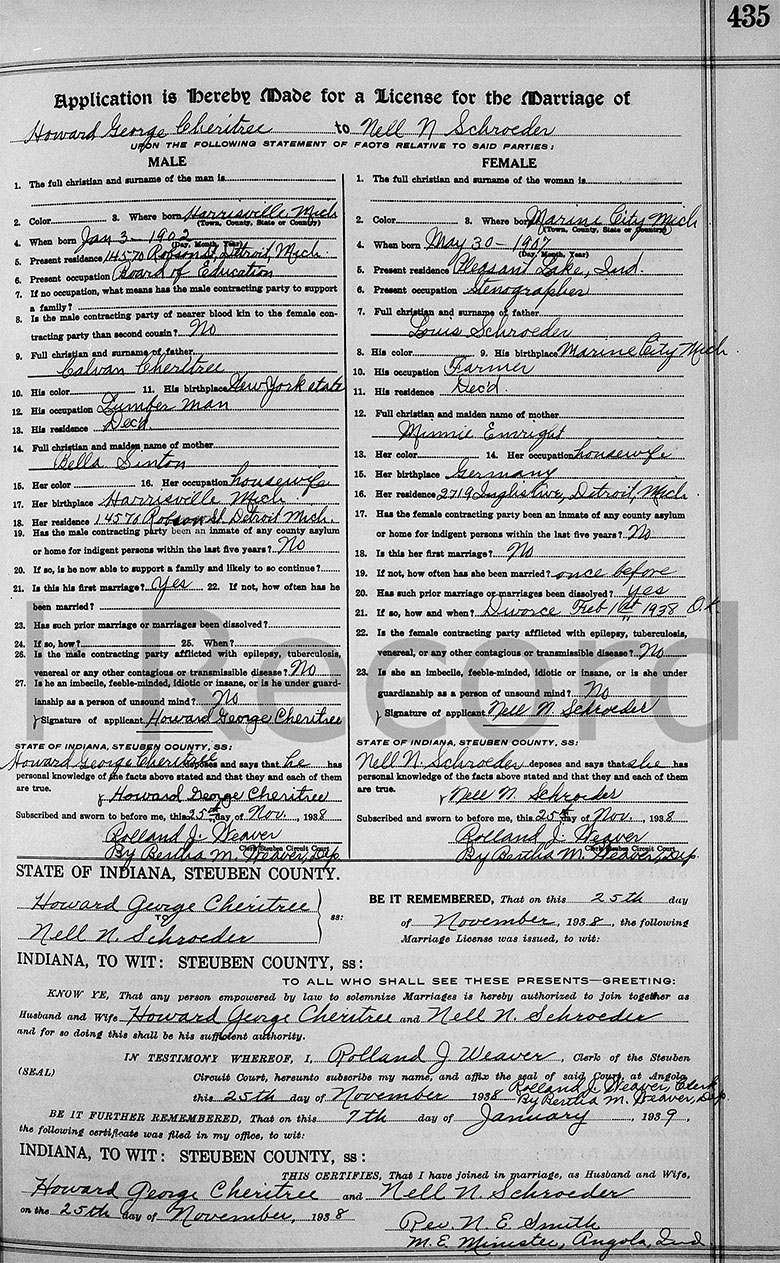 435
Application is Hereby Made for a License for the Marriage of
Howard George Cheritree to Nell N Schroeder
UPON THE FOLLOWING STATEMENT OF FACTS RELATIVE TO SAID PARTIES:
MALE
1. The full christian and surname of the man is
2. Color 3. Where born Harrisville, Mich
(Town, County, State or Country)
4. When born Jan 3 - 1902
(Day, Month, Year)
5. Present residence 14570 Robson St, Detroit, Mich.
6. Present occupation Board of Education
7. If no occupation, what means has the male contracting party to support
a family?
8. Is the male contracting party of nearer blood kin to the female con-
tracting party than second cousin? No
9. Full christian and surname of father
Calvan Cheritree
10. His color 11. His birthplace New York state
12. His occupation Lumber Man
13. His residence Dec'd
14. Full christian and maiden name of mother
Bella Sinton
15. Her color 16. Her occupation housewife
17. Her birthplace Harrisville Mich
18. Her residence 14570 Robson St Detroit Mich.
19. Has the male contracting party been an inmate of any county asylum
or home for indigent persons within the last five years? No
20. If so, is he now able to support a family and likely to so continue?
21. Is this his first marriage? Yes 22. If not, how often has he
been married?
23. Has such prior marriage or marriages been dissolved?
24. If so, how? 25. When?
26. Is the male contracting party afflicted with epilepsy, tuberculosis,
venereal or any other contagious or transmissible disease? No
27. Is he an imbecile, feeble-minded, idiotic or insane, or is he under guard-
ianship as a person of unsound mind? No
Signature of applicant Howard George Cheritree
STATE OF INDIANA, STEUBEN COUNTY, SS:
Howard George Cheritree deposes and says that he has
personal knowledge of the facts above stated and that they and each of them
are true.
Howard George Cheritree
Subscribed and sworn to before me, this 25th day of Nov. , 1938
Rolland J. Weaver
Clerk Steuben Circuit Court
By Bertha M. Weaver, Dep
FEMALE
1. The full christian and surname of the woman is
2. Color 3. Where born Marine City Mich
(Town, County, State or Country)
4. When born May 30 - 1907
(Day, Month, Year)
5. Present residence Pleasant Lake, Ind.
6. Present occupation Stenographer
7. Full christian and surname of father
Louis Schroeder
8. His color 9. His birthplace Marine City Mich.
10. His occupation Farmer
11. His residence Dec'd.
12. Full christian and maiden name of mother
Minnie Enright
13. Her color 14. Her occupation housewife
15. Her birthplace Germany
16. Her residence 2719 Detroit, Mich
17. Has the female contracting party been an inmate of any county asylum
or home for indigent persons within the last five years? No
18. Is this her first marriage? No
19. If not, how often has she been married? once before
20. Has such prior marriage or marriages been dissolved? yes
21. If so, how and when? Divorce Feb 1st 1938 O.K.
22. Is the female contracting party afflicted with epilepsy, tuberculosis,
venereal, or any other contagious or transmissible disease? No
23. Is she an imbecile, feeble-minded, idiotic or insane, or is she under
guardianship as a person of unsound mind? No
Signature of applicant Nell N Schroeder
STATE OF INDIANA, STEUBEN COUNTY, SS:
Nell N. Schroeder deposes and says that she has
personal knowledge of the facts above stated and that they and each of them
are true.
Nell N. Schroeder
Subscribed and sworn to before me, this 25th day of Nov. , 1938
Rolland J. Weaver
Clerk Steuben Circuit Court
By Bertha M. Weaver, Dep.
STATE OF INDIANA, STEUBEN COUNTY.
Howard George Cheritree
TO
Nell N. Schroeder
ss:
BE IT REMEMBERED, That on this 25th day
of November, 1938, the following
Marriage License was issued, to wit:
INDIANA, TO WIT: STEUBEN COUNTY, ss:
TO ALL WHO SHALL SEE THESE PRESENTS—GREETING:
KNOW YE, That any person empowered by law to solemnize Marriages is hereby authorized to join together as
Husband and Wife Howard George Cheritree and Nell N. Schroeder
and for so doing this shall be his sufficient authority.
IN TESTIMONY WHEREOF, I, Rolland J Weaver, Clerk of the Steuben
(SEAL) Circuit Court, hereunto subscribe my name, and affix the seal of said Court, at Angola
this 25th day of November 1938 Rolland J. Weaver, Clerk
By Bertha M. Weaver, Dep
BE IT FURTHER REMEMBERED, That on this 7th day of January 1939,
the following certificate was filed in my office, to wit:
INDIANA, TO WIT: STEUBEN COUNTY, ss:
THIS CERTIFIES, That I have joined in marriage, as Husband and Wife,
Howard George Cheritree and Nell N Schroeder
on the 25th day of November, 1938
Rev. N. E. Smith
M. E. Minister, Angola, Ind
Record